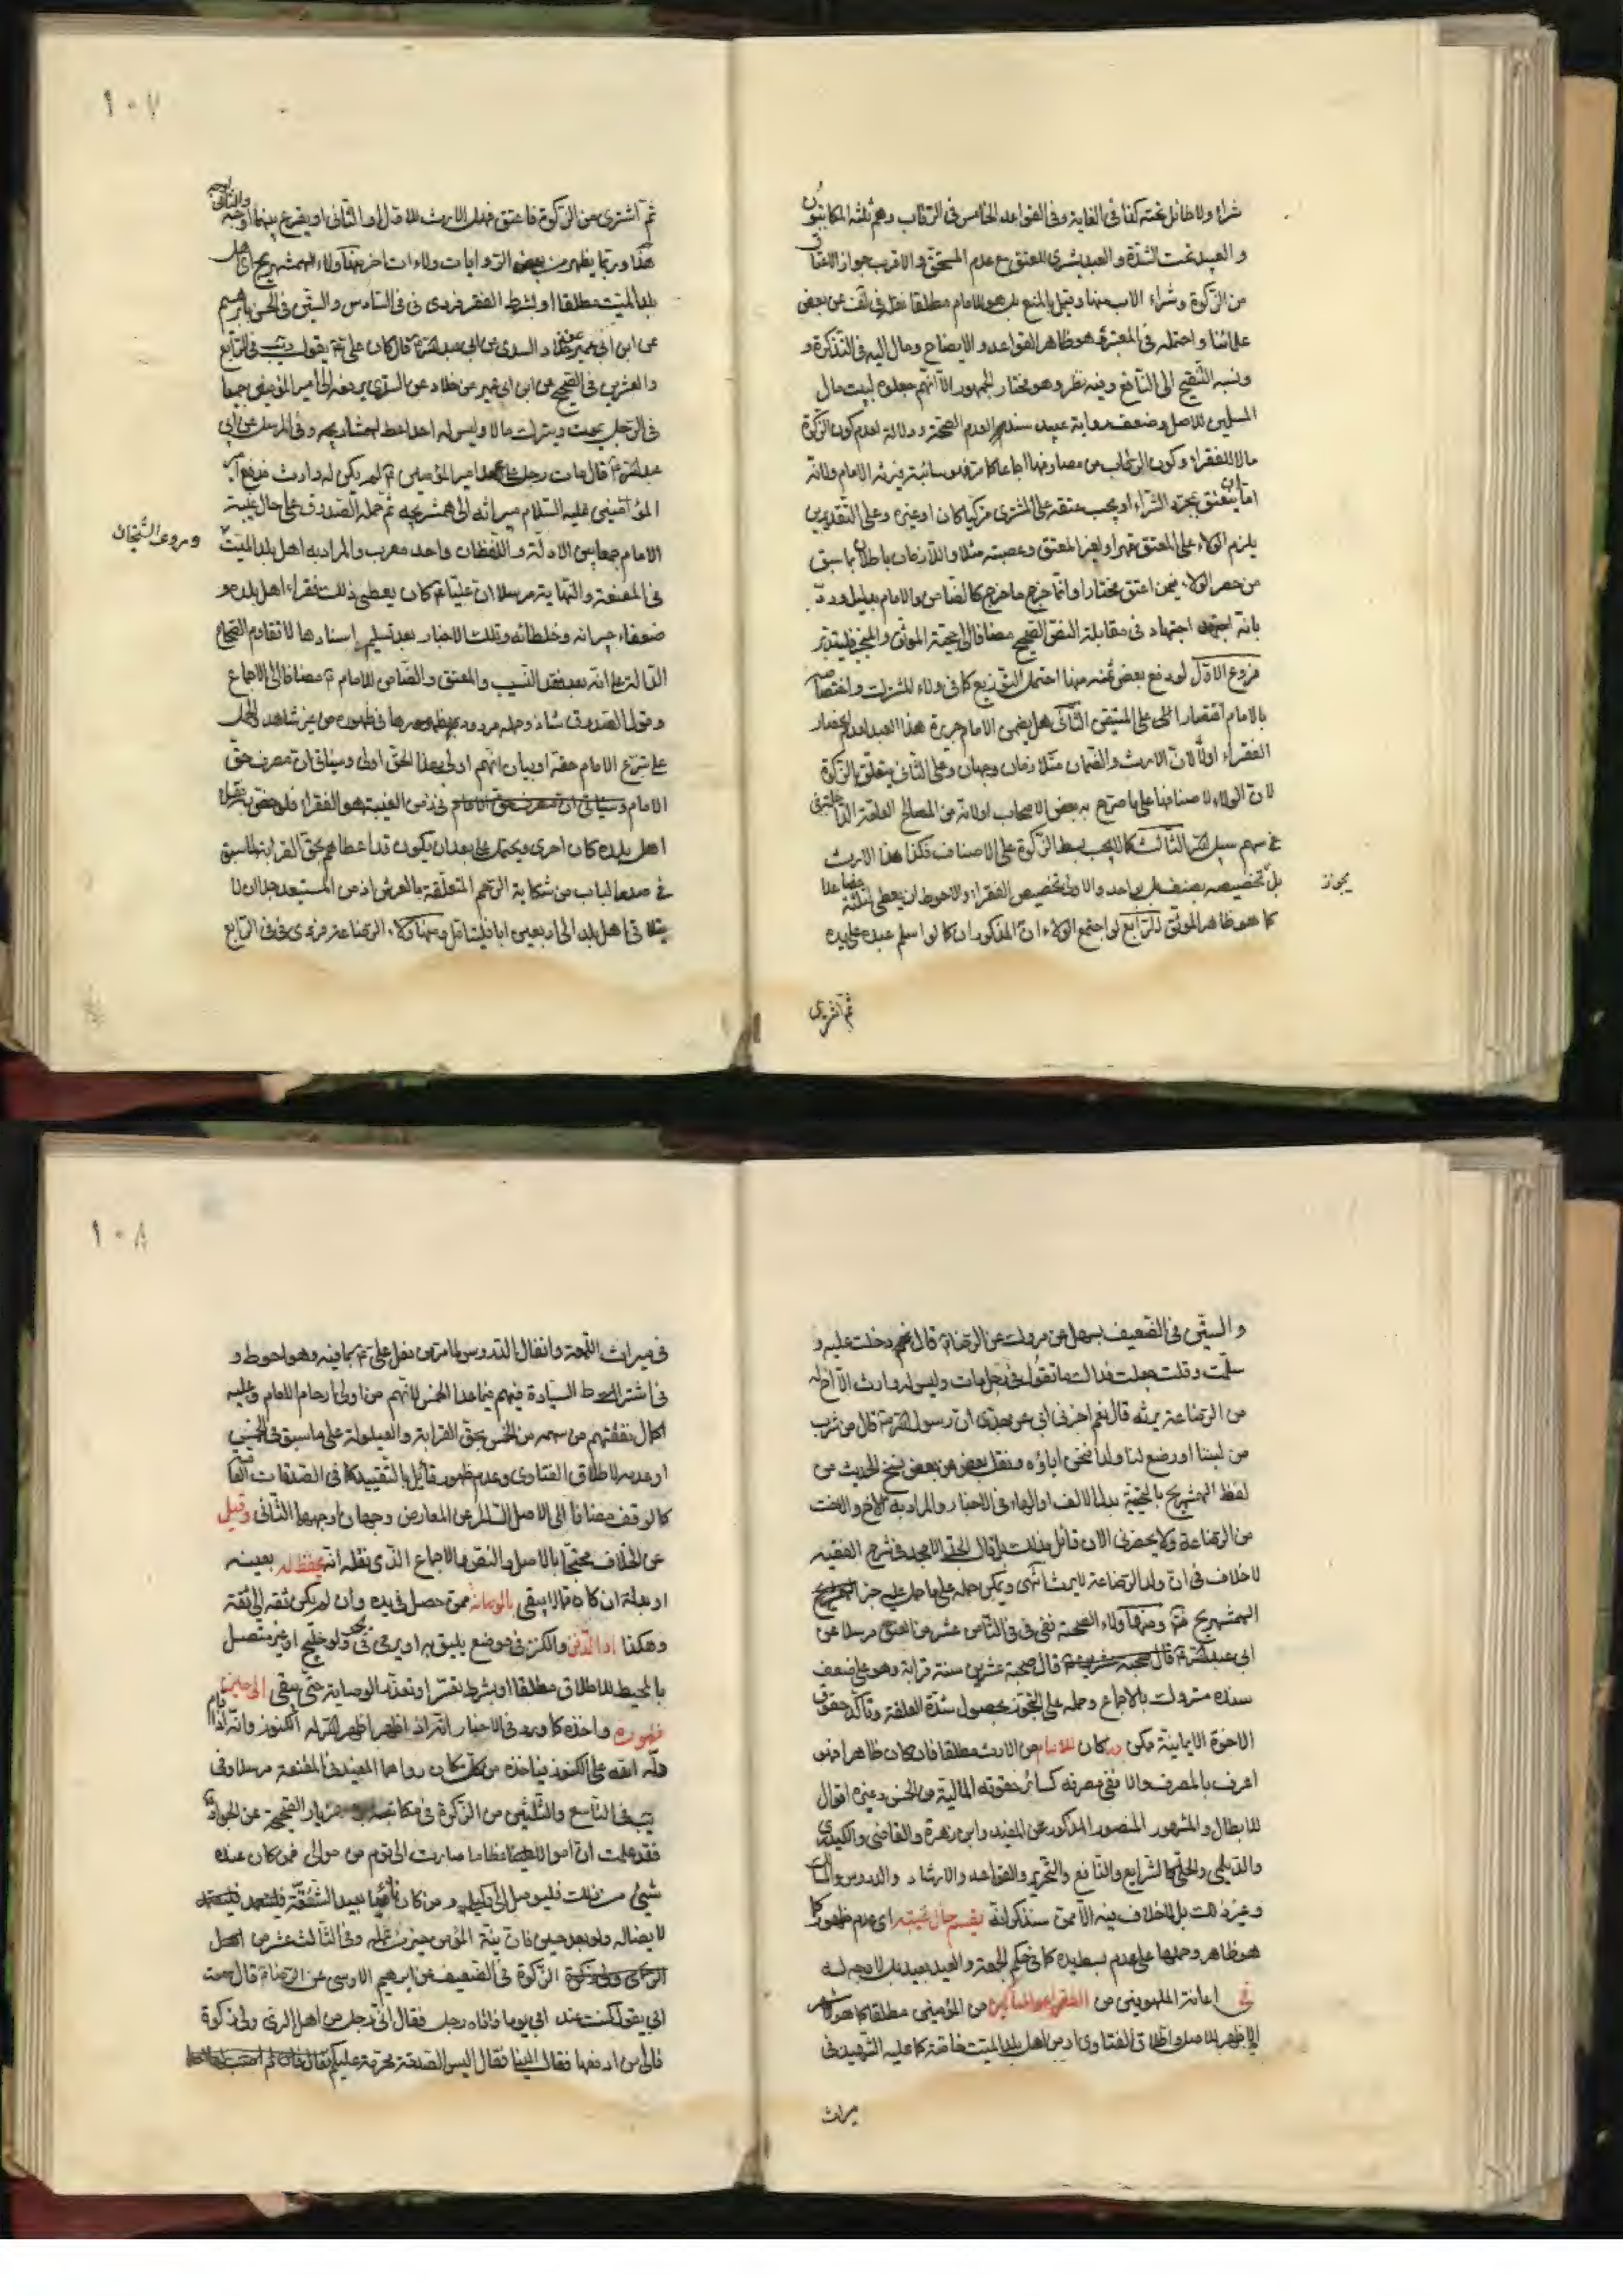 شراء ولا طائل تحته كما فى الغاية وفى القواعد الخامس فى الرقاب وهم ثلثة المكاتبون
و العبيد تحت الشدة و العبد يشترى للعتق مع عدم المستحق و الاقرب جواز الاعتاق
من الزكوة و شراء الاب منها وقيل بالمنع بل هو للامام مطلقا نقل فى لف عن بعض
علمائنا و احتمله فى المعتبر وهو ظاهر القواعد و الايضاح ومال اليه فى التذكرة و
ونسبه التنقيح الى النافع وفيه نظر وهو مختار الجمهور الا انهم جعلوه لبيت مال
المسلمين للاصل وضعف رواية عبيد سندا لعدم الصحة و دلالة لعدم كون الزكوة
مالا للفقراء وكون الرقاب من مصارفها اجماعا كما مر فهو سائبة يرثه الامام ولانه
اما ان ينعتق بمجرد الشراء او يجب عتقه على المشترى مزكيا كان او غيره وعلى التقديرين
يلزم الولاء على المعتق قهرا و لغير المعتق وعصبته مثلا واللازمان باطلان بما سبق
من حصر الولاء فيمن اعتق مختارا وانما خرج ما خرج كالضامن والامام بدليل ورد
بانه اجتهاد فى مقابلة النص الصحيح مضافا الى حجية الموثق والمنجبر فليتدبر
فروع الاول لو دفع بعض ثمنه منها احتمل التوزيع كما فى ولاء المشترك واختصاصه
بالامام اقتصارا على المتيقن الثانى هل يضمن الامام جريرة هذا العبد لعدم انحصار
الفقراء اولا لان الارث والضمان متلازمان وجهان وعلى الثانى يتعلق بالزكوة
لان الولاء لاصنافها على ما صرح به بعض الاصحاب او لانه من المصالح العامة الداخلة
فى سهم سبيل الله الثالث كما لا يجب بسط الزكوة على الاصناف فكذا هذا الارث
بل يجوز تخصيصه بصنف بل بواحد والاولى تخصيص الفقراء والاحوط ان يعطى ثلثة فصاعدا
كما هو ظاهر الموثق الرابع لو اجتمع الولاء ان المذكوران كما لو اسلم عبده على يده
ثم اشترى
١٠٧
ثم اشترى من الزكوة فاعتق فهل الارث للاول او الثانى او يقرع بينهما اوجه
هذا وربما يظهر من بعض الروايات ولاء ات اخر منها ولاء الهمشهريج اى اهل
بلد الميت مطلقا او بشرط الفقر فروى فى فى السادس والستين فى الحسن بابرهيم
عن ابن ابى عمير عن خلاد السدى عن ابى عبد الله ع قال كان على ع يقول ويب فى الرابع
والعشرين فى الصحيح عن ابن ابى عمير عن خلاد عن السرى يرفعه الى امير المؤمنين جميعا
فى الرجل يموت ويترك مالا وليس له احد اعط همشاريجه وفى المرسل عن ابى
عبد الله ع قال مات رجل على عهد امير المؤمنين ع لم يكن له وارث فدفع امير
المؤمنين عليه السلام ميراثه الى همشريجه ثم حمله الصدوق على حال غيبة
الامام جمعا بين الادلة و اللفظان واحد معرب والمراد به اهل بلد الميت وروى الشيخان
فى المقنعة والنهاية مرسلا ان عليا ع كان يعطى ذلك فقراء اهل بلده و
ضعفاء جيرانه وخلطائه وتلك الاخبار بعد تسليم اسنادها لا تقاوم الصحاح
الدالة على انه بعد فقد النسيب والمعتق والضامن للامام ع مضافا الى الاجماع
وقول الصدوق شاذ وحمله مردود بظهورها فى ظهوره من غير شاهد والحمل
على تبرع الامام حقه او بيان انهم اولى بهذا الحق اولى وسياتى ان مصرف حق
الامام فى زمن الغيبة هو الفقراء فلو خص به فقراء
اهل بلده كان احرى ويحتمل على بعد ان يكون قد اعطاهم بحق القرابة لما سبق
فى صدر الباب من شكاية الرحم المتعلقة بالعرش اذ من المستبعد جدا ان لا
يتلاقى اهل بلد الى اربعين ابا فليتامل ومنها ولاء الرضاعة فروى فى فى الرابع
و الستين فى الضعيف بسهل عن مروك عن الرضا ع قال نعم دخلت عليه و
سلمت وقلت جعلت فداك ما تقول فى رجل مات وليس له وارث الا اخ له
من الرضاعة يرثه قال نعم اخبرنى ابى عن جدى ان رسول الله ص قال من شرب
من لبننا او رضع لنا ولدا فنحن اباؤه ونقل بعض عن بعض نسخ الحديث من
لفظ الهمشريج بالتحتية بدل الالف او الهاء فى الاخبار والمراد به الاخ والاخت
من الرضاعة ولا يحضرنى الان قائل بذلك بل قال المجلسى الامجد فى شرح الفقيه
لا خلاف فى ان ولد الرضاعة لا يرث انتهى ويمكن حمله على ما حمل عليه خبر
الهمشهريج ومنها ولاء الصحبة ففى فى فى الثامن عشر من العتق مرسلا عن
ابى عبد الله ع قال صحبة عشرين سنة قرابة وهو على ضعف
سنده متروك بالاجماع وحمله على التجوز بحصول شدة العلقة وتاكد حقوق
الاخوة الايمانية ممكن وكان للامام من الارث مطلقا فان كان ظاهرا فهو
اعرف بالمصرف والا ففى مصرفه كسائر حقوقه المالية من الخمس وغيره اقوال
للابطال والمشهور المنصور المذكور عن المفيد وابن زهرة والقاضى والكيدرى
والديلمى والحلى كالشرايع والنافع والتحرير والقواعد والارشاد والدروس والمسالك
وغير ذلك بل لا خلاف فيه الا ممن سنذكر انه يقسم حال غيبته اى عدم ظهوره كما
هو ظاهر وحملها على عدم بسط يده كما فى حكم الجمعة والعيد بعيد بل لا وجه له
فى اعانة الملهوفين من الفقراء والمساكين من المؤمنين مطلقا كما هو الاشهر
الاظهر للاصل واطلاق الفتاوى او من اهل بلد الميت خاصة كما عليه الشهيد فى
ميراث
١٠٨
فى ميراث اللمعة وانفال الدروس لما مر من فعل على ع بما فيه وهو احوط و
فى اشتراط السيادة فيهم فيما عدا الخمس لانهم من اولى ارحام الامام وعليه
اكمال نفقتهم من سهمه من الخمس بحق القرابة والعيلولة على ما سبق فى الخمس
او عدمه لاطلاق الفتاوى وعدم ظهور قائل بالتقييد كما فى الصدقات
كالوقف مضافا الى الاصل السالم عن المعارض وجهان اوجههما الثانى وقيل
عن الخلاف محتجا بالاصل والنص والاجماع الذى نقله انه يحفظ له بعينه
او بدله ان كان مما لا يبقى بالوصاية ممن حصل فى يده وان لم يكن ثقة الى ثقة
وهكذا او الدفن والكنز فى موضع يليق به او يرمى فى بحر ولو خليج او غير متصل
بالمحيط للاطلاق مطلقا او بشرط تعسر او تعذر الوصاية حتى يبقى الى حين
ظهوره واخذه كما ورد فى الاخبار انه اذا ظهر اظهر الله له الكنوز وانه اذا قام
دله الله على الكنوز فياخذه من كل مكان رواهما المفيد فى المقنعة مرسلا وفى
يب فى التاسع والثلثين من الزكوة فى مكاتبة ابن مهزيار الصحيحة عن الجواد ع
فقد علمت ان اموالا عظاما صارت الى قوم من موالى فمن كان عنده
شيئ من ذلك فليوصل الى وكيلى ومن كان نائيا بعيد الشقة فليتعمد
لايصاله ولو بعد حين فان نية المؤمن خير من عمله وفى الثالث عشر من
الزكوة فى الضعيف عن ابرهيم الاوسى عن الرضا ع قال سمعت
ابى يقول كنت عند ابى يوما فاتاه رجل فقال انى رجل من اهل الرى ولى زكوة
فالى من ادفعها فقال الينا فقال اليس الصدقة محرمة عليكم فقال